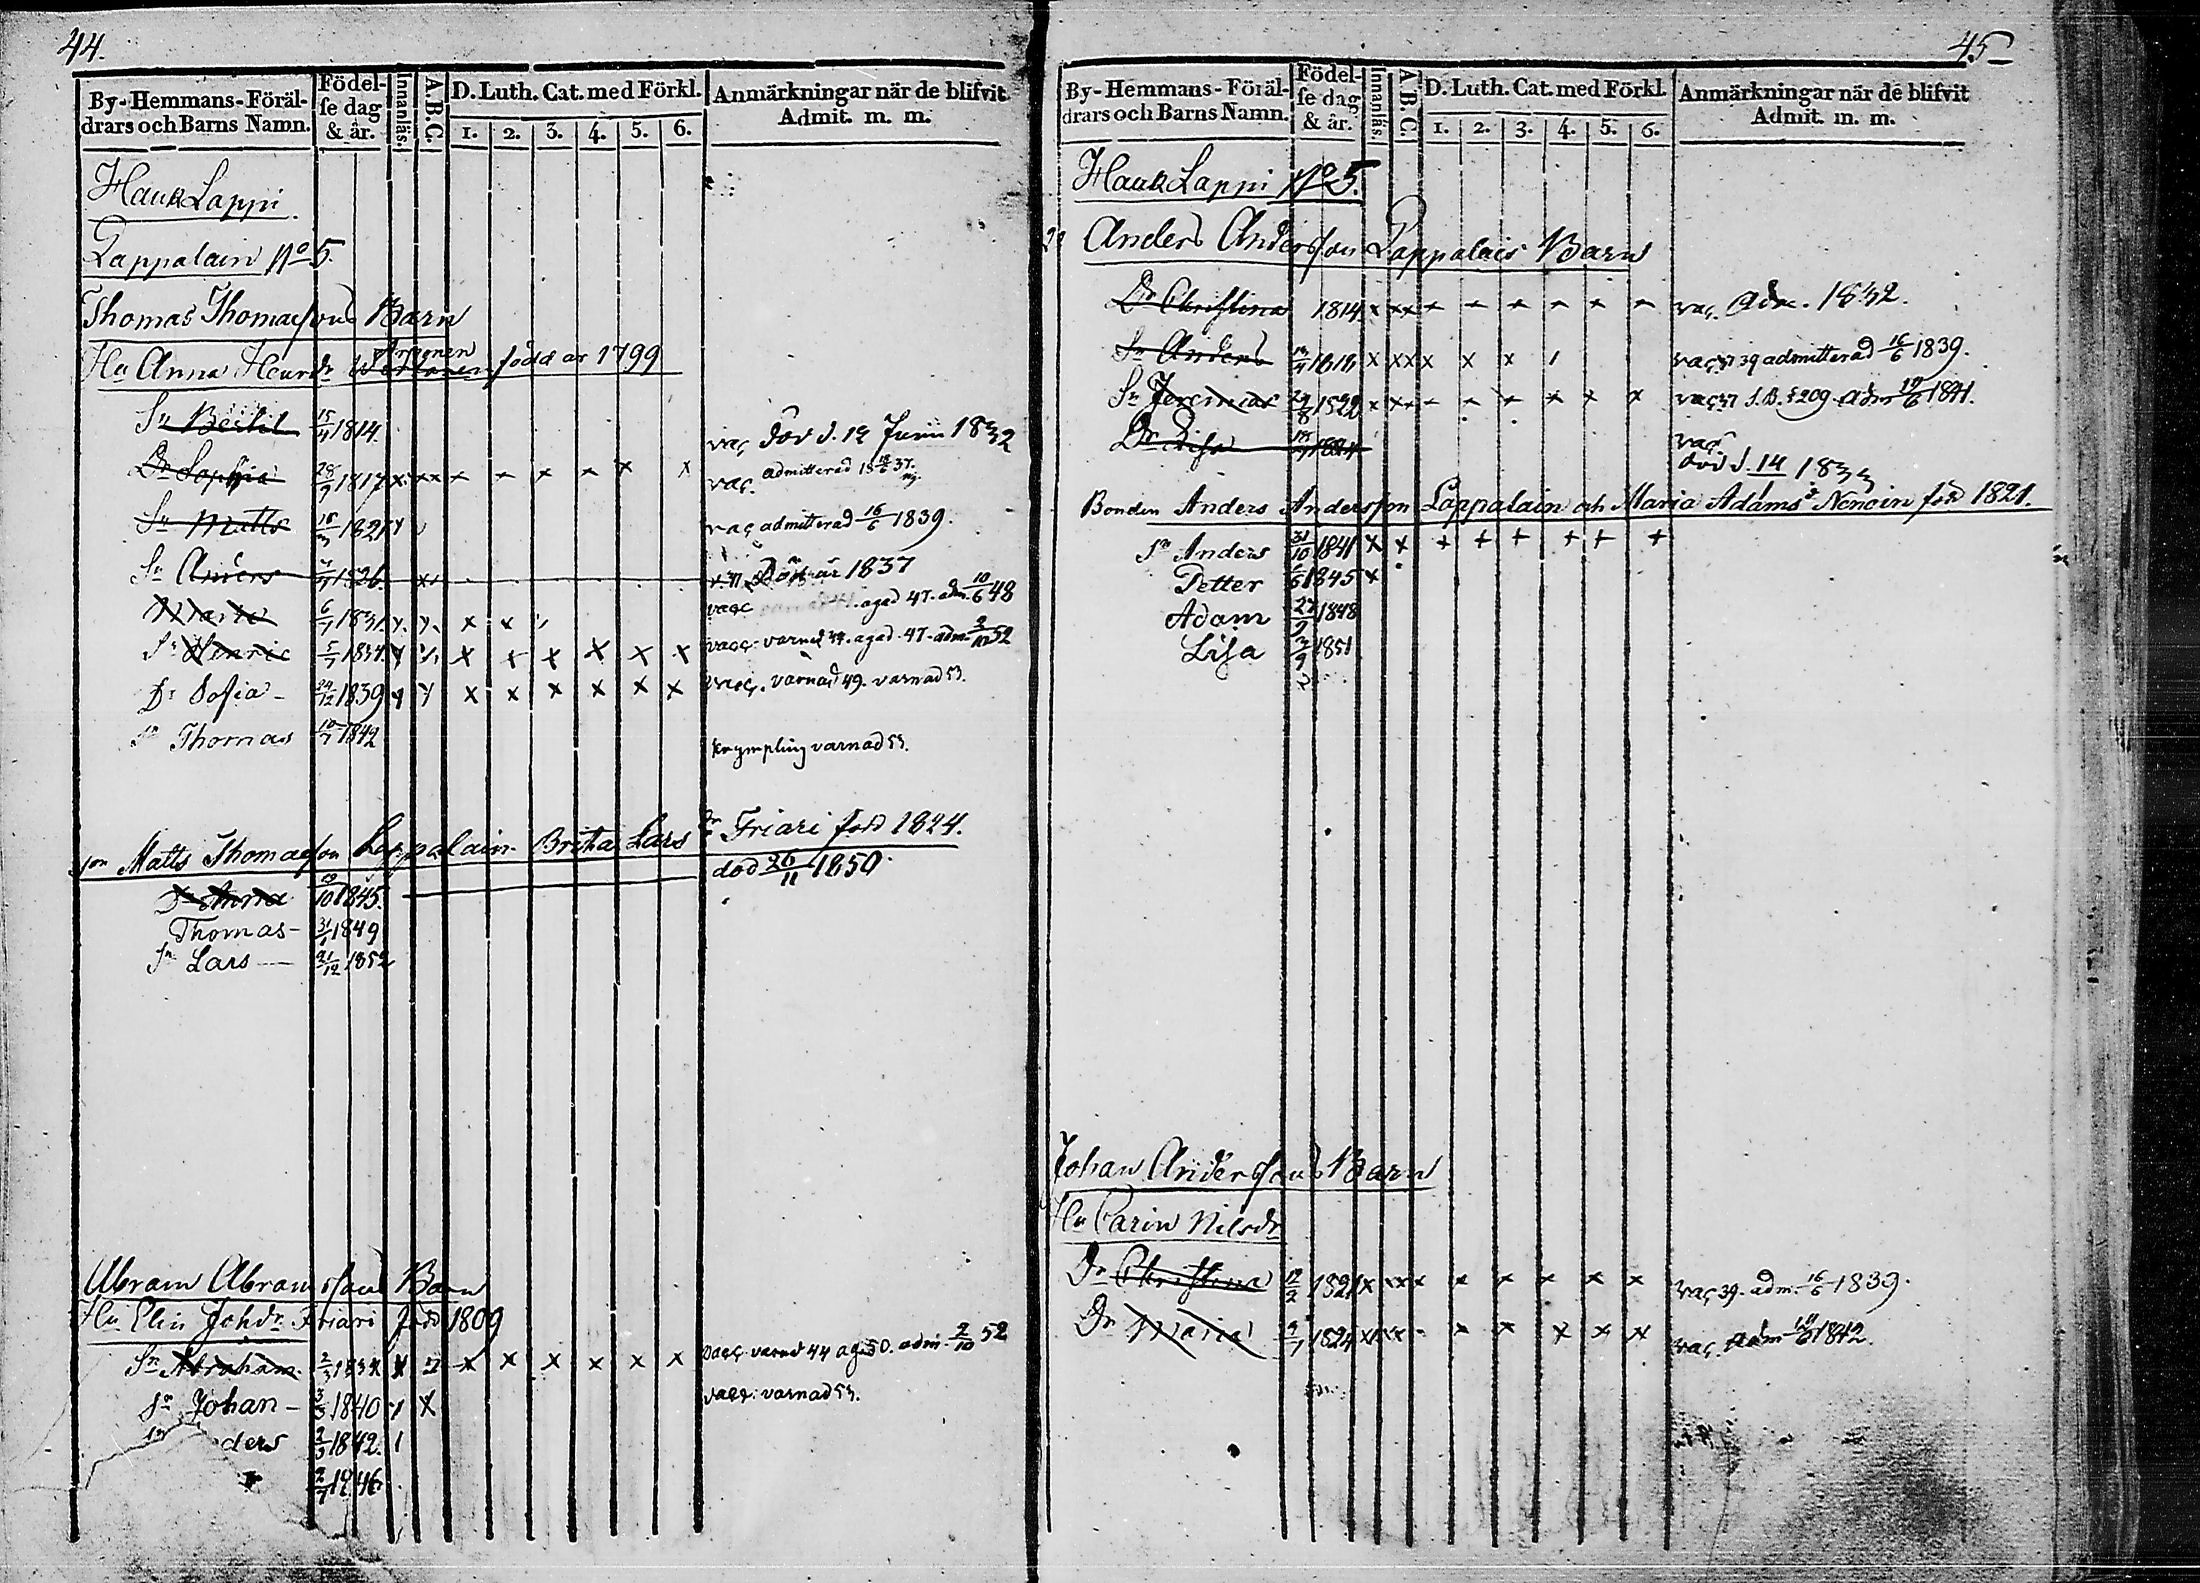 44.
By-Hemmans-Föräl-
drars och Barns Namn.
Födel-
se dag
& år.
Innanläs.
A.B.C.
D. Luth. Cat. med Förkl.
1. 2. 3. 4. 5. 6.
Anmärkningar när de blifvit
Admit. m. m.
HaukLappi.
Lappalain No 5.
Thomas Thomassons Barn
Hu Anna Henrdr född år 1799
Sn Bertil 15/4 1814 vac död d. 12 Junii 1832
Dr Sophia 28/9 1817 x xx x x x x x x vac. admitterad 18 18/6 37.
Sn Matts 1821 vac admitterad 16/6 1839.
Sn Anders 1826 Död år 1837
Maria 6/7 1831 x x vacc agad 47. adm. 10/6 48
Sn Henric 5/7 1834 x x x x x x vacc. varnad 44. agad. 47. adm. 2/10 52
Dr Sofia - 24/12 1839 x x x x x x vacc. varnad 49. varnad 53.
Sn Thomas 10/7 1842 krympling varnad 53.
son Matts Thomasson Lappalain Brita Lars Dr Friari född 1824.
Dr Anna 10 1845. död 26/11 1850.
Thomas - 31/1 1849
Sn Lars - 21/12 1852
Abram Abramssons Barn
Hu Elin Johdr Friari född 1809
Sn Abraham x x x x x x vacc varnad 44 agad 50. adm. 2/10 52
Sn Johan - 3/3 1840 x vacc. varnad 53.
Sn ders 2/3 1842.
2/7 1846
45
By-Hemmans-Föräl-
drars och Barns Namn.
Födel-
se dag
& år.
Innanläs.
A.B.C.
D. Luth. Cat. med Förkl.
1. 2. 3. 4. 5. 6.
Anmärkningar när de blifvit
Admit. m. m.
HaukLappi No 5.
Anders Andersson Lappalais Barn
Dr Christina 1814 x xx vac. Adm. 1832.
Sn Anders 1818 x xx x x x vac 39 admitterad 16/6 1839.
Sn Jeremias 29/8 1822 x xx vac 37 S.B. § 209 adm 1841.
Dr Lisa 1824 vac.
död d. 14 1833
Bonden Anders Andersson Lappalain och Maria Adams dr Nenoin född 1821.
Sn Anders 31/10 1841 x x + + + + + +
Petter 1845 x
Adam 27/9 1848
Lisa 1851
Johan Anderssons Barn
Hu Carin Nilsdr
Dr Christina 1821 x xxx x x x x x x vac 39. adm. 16/6 1839.
Dr Maria 1824 xxxx x x x x x vac. adm 1842.